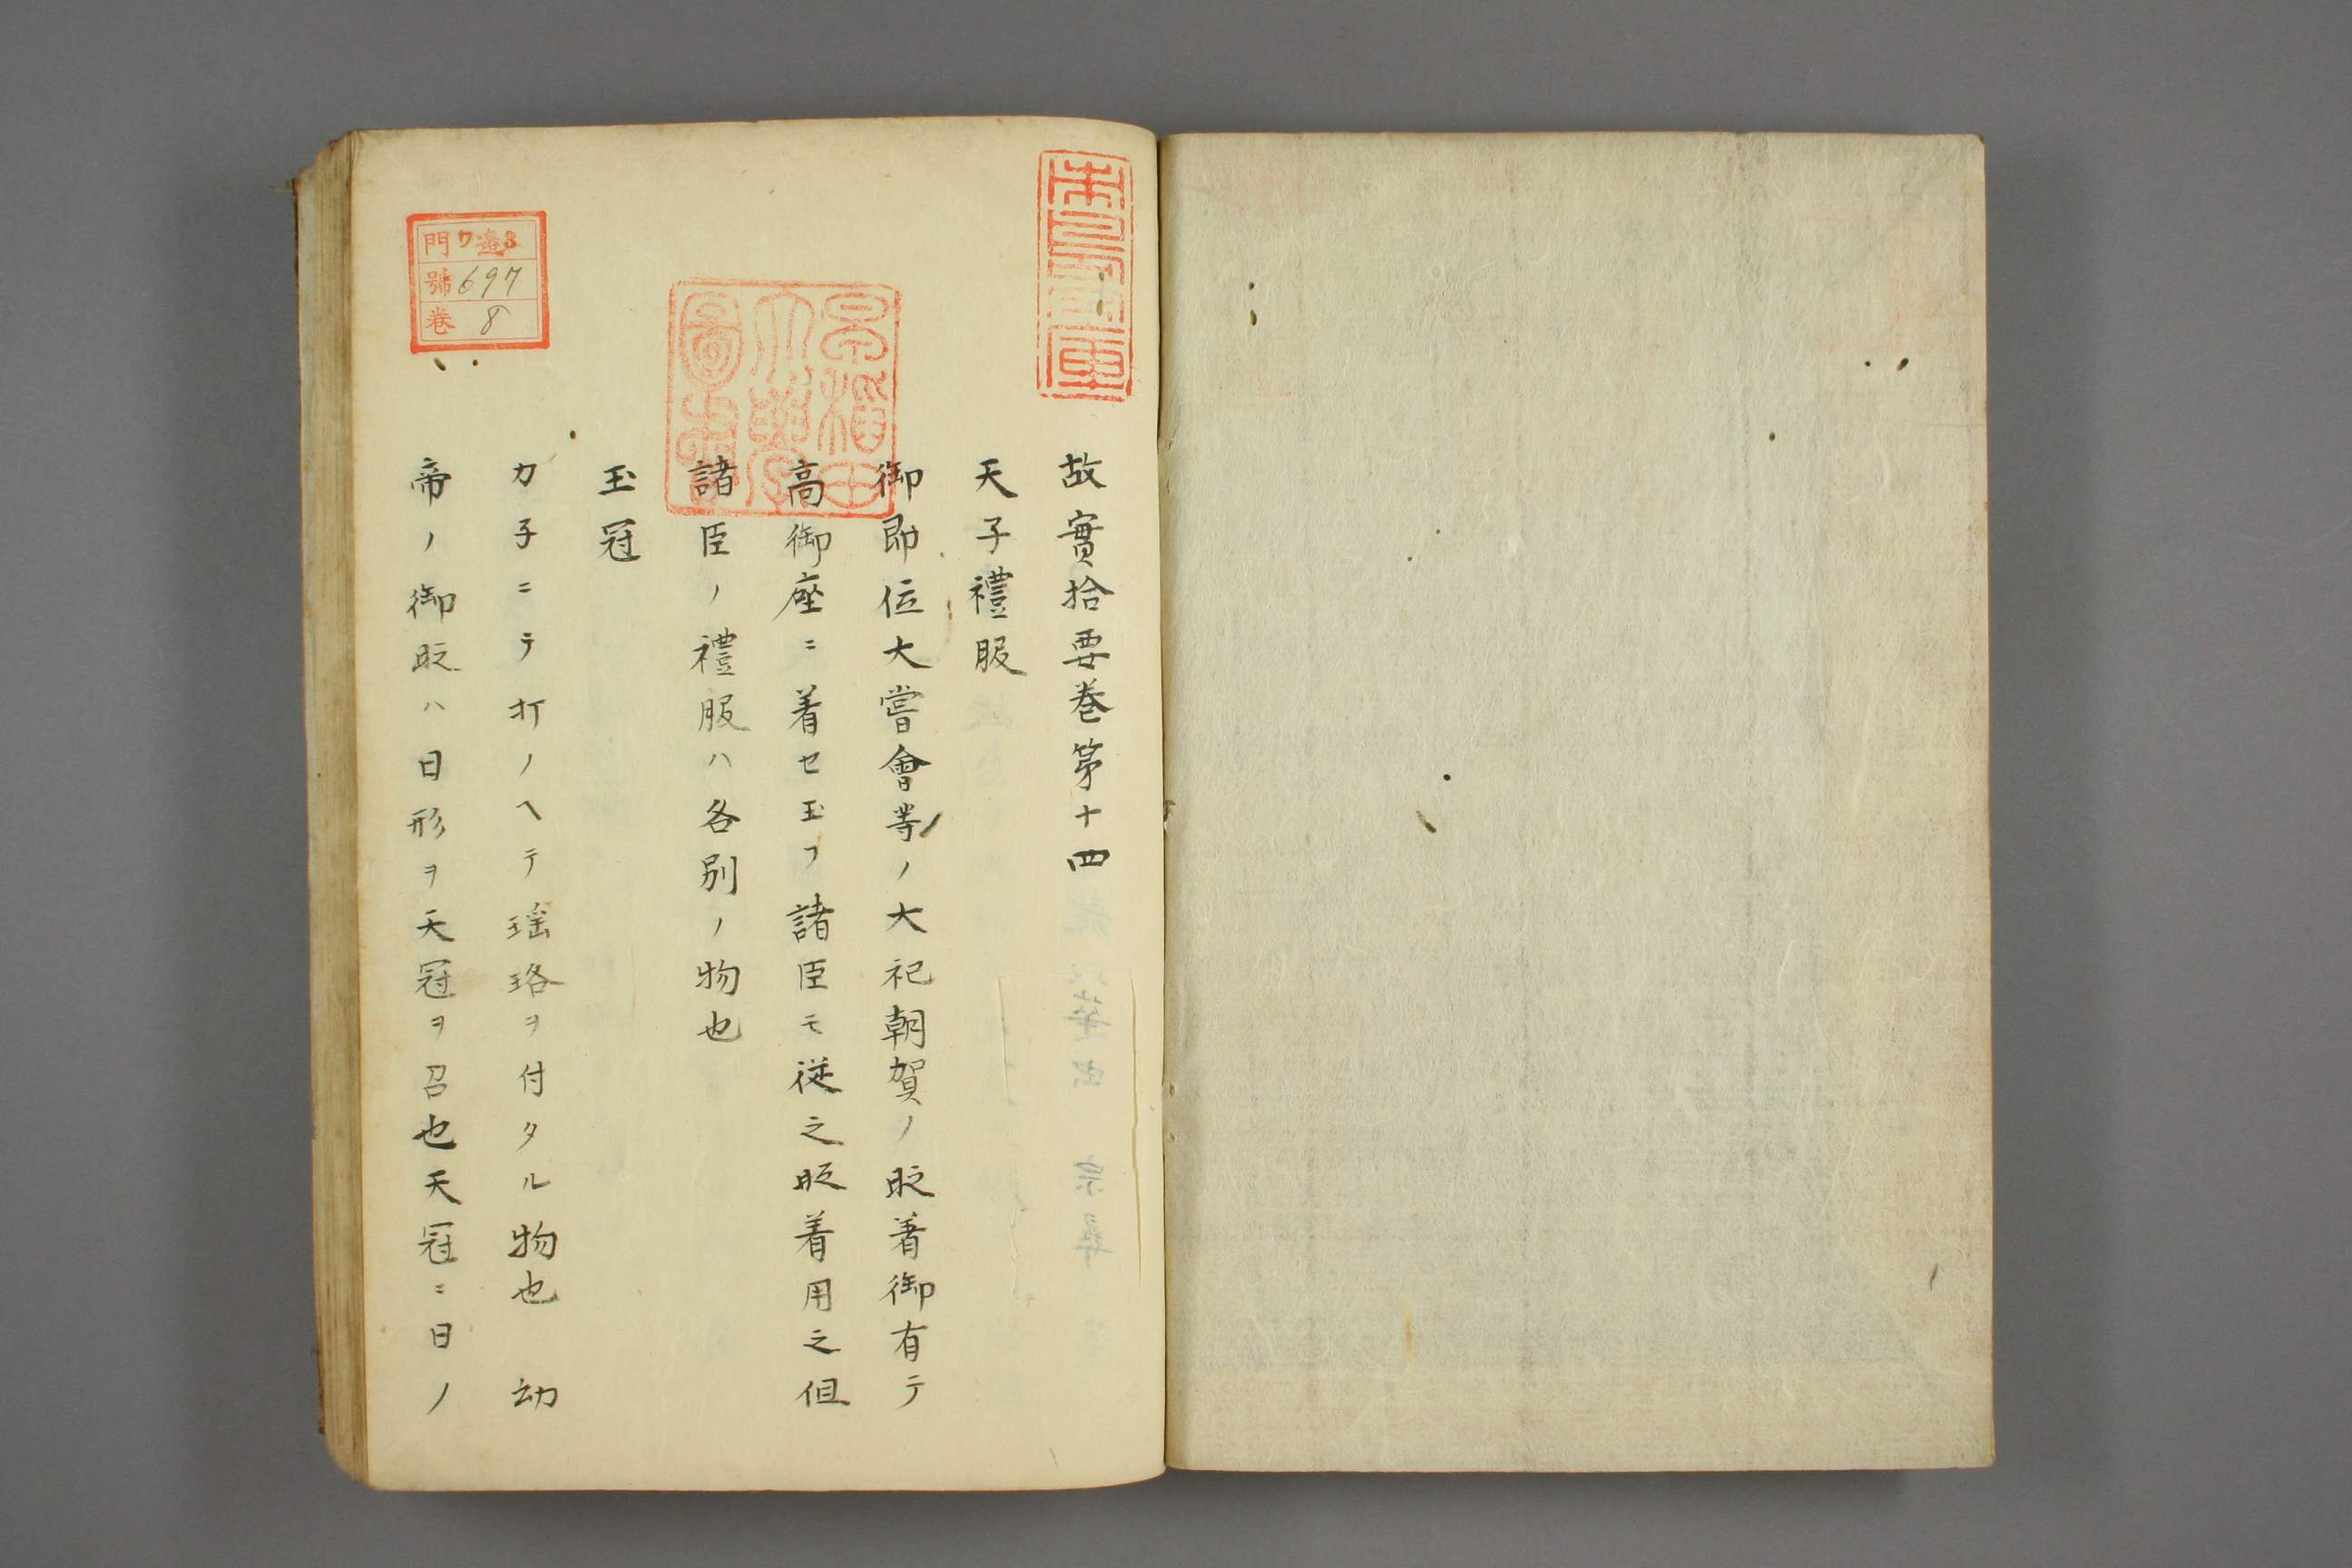 故實拾要巻第十四
天子禮服
御即位大嘗會等ノ大祀朝賀ノ時着御有テ
高御座ニ着セ玉フ諸臣モ従之時着用之但
諸臣ノ禮服ハ各別ノ物也
玉冠
カ子ニテ打ノヘテ瑶珞ヲ付タル物也 幼
帝ノ御時ハ日形ヲ天冠ヲ召也天冠ニ日ノ
早稲田
大學
圖書
門ワ3
號697
巻8